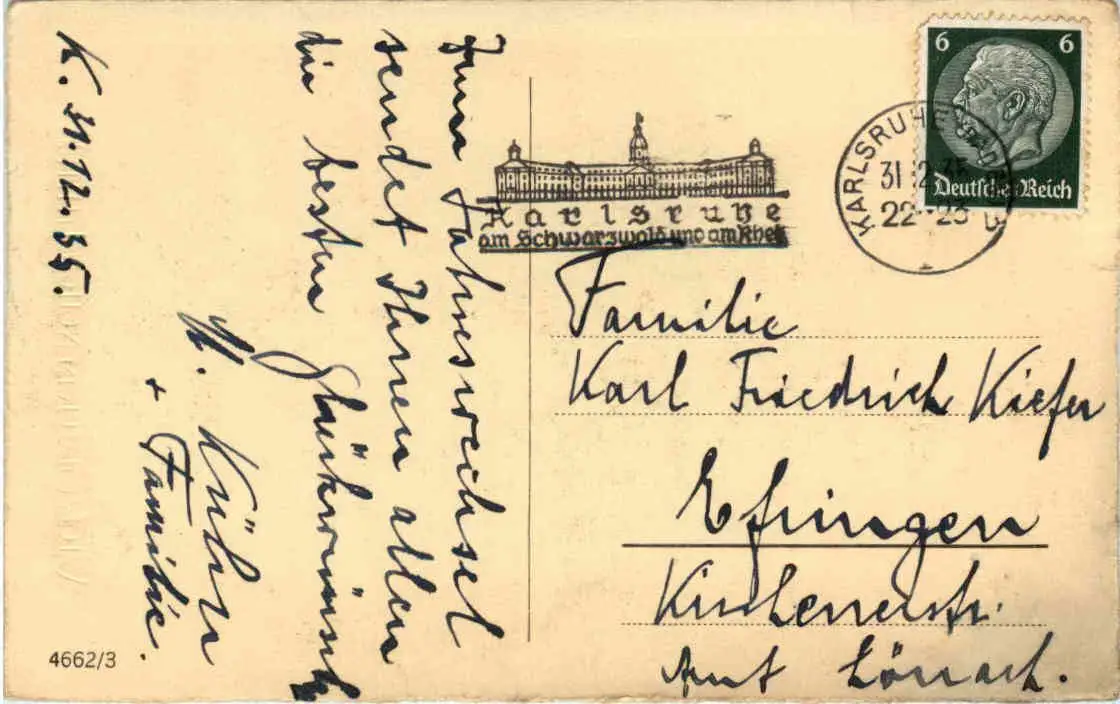 K. 31.12.35.
Zum Jahreswechsel
sendet Ihnen allen
die besten Glückwünsche
M. Kühn
+ Familie.
4662/3
Karlsruhe
am Schwarzwald und am Rhein
KARLSRUHE
31.12.35
22-23
6 6
Deutsches Reich
Familie
Karl Friedrich Kiefer
Efringen
Amt Lörrach.